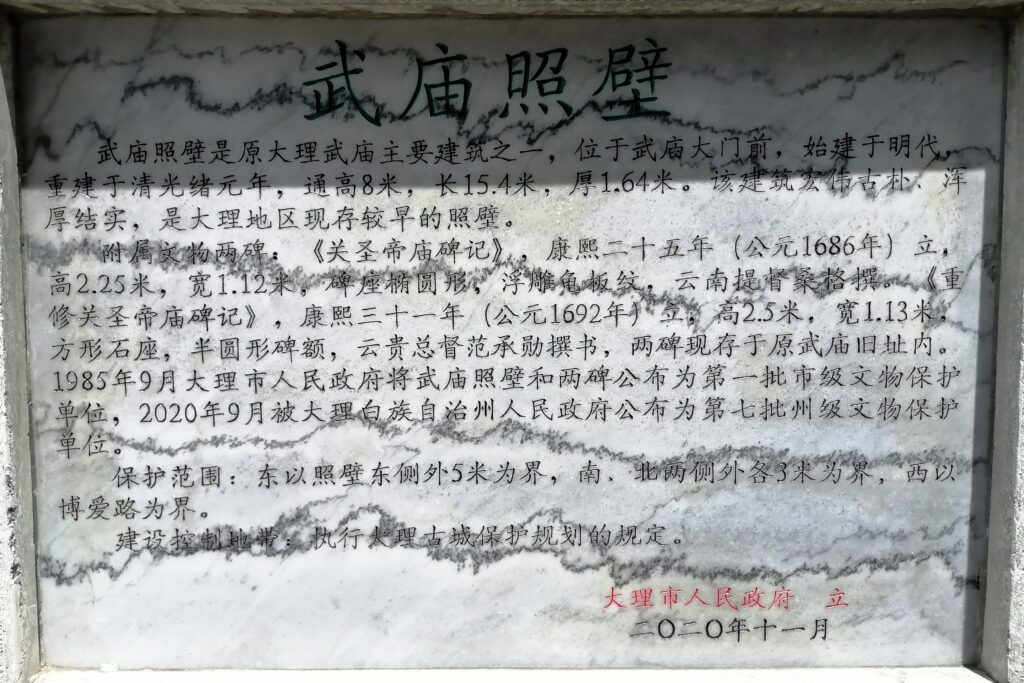 武庙照壁
武庙照壁是原大理武庙主要建筑之一，位于武庙大门前，始建于明代，
重建于清光绪元年，通高8米，长15.4米，厚1.64米。该建筑宏伟古朴、浑
厚结实，是大理地区现存较早的照壁。
附属文物两碑：《关圣帝庙碑记》，康熙二十五年（公元1686年）立，
高2.25米，宽1.12米，碑座椭圆形，浮雕龟板纹，云南提督桑格撰。《重
修关圣帝庙碑记》，康熙三十一年（公元1692年）立，高2.5米，宽1.13米，
方形石座，半圆形碑额，云贵总督范承勋撰书，两碑现存于原武庙旧址内。
1985年9月大理市人民政府将武庙照壁和两碑公布为第一批市级文物保护
单位，2020年9月被大理白族自治州人民政府公布为第七批州级文物保护
单位。
保护范围：东以照壁东侧外5米为界，南、北两侧外各3米为界，西以
博爱路为界。
建设控制地带：执行大理古城保护规划的规定。
大理市人民政府 立
二〇二〇年十一月